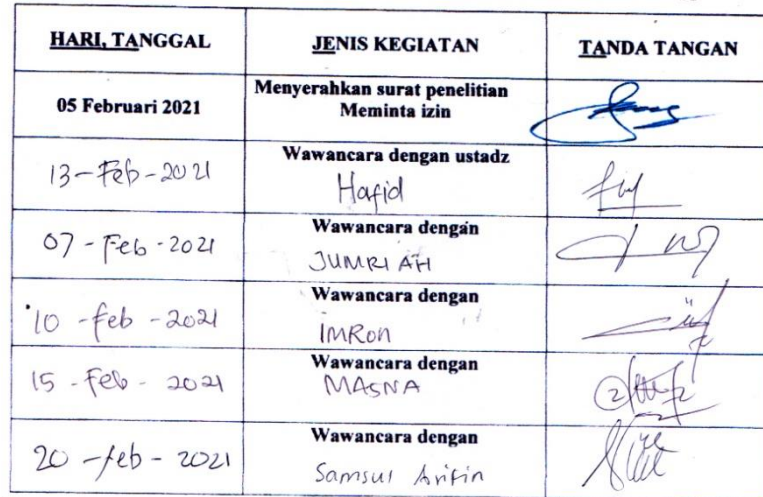 HARI, TANGGAL JENIS KEGIATAN TANDA TANGAN
05 Februari 2021 Menyerahkan surat penelitian
Meminta izin
13-Feb-2021 Wawancara dengan ustadz
Hafid
07-Feb-2021 Wawancara dengan
JUMRIAH
10-feb-2021 Wawancara dengan
IMRon
15-Feb-2021 Wawancara dengan
MASNA
20-feb-2021 Wawancara dengan
Samsul Arifin